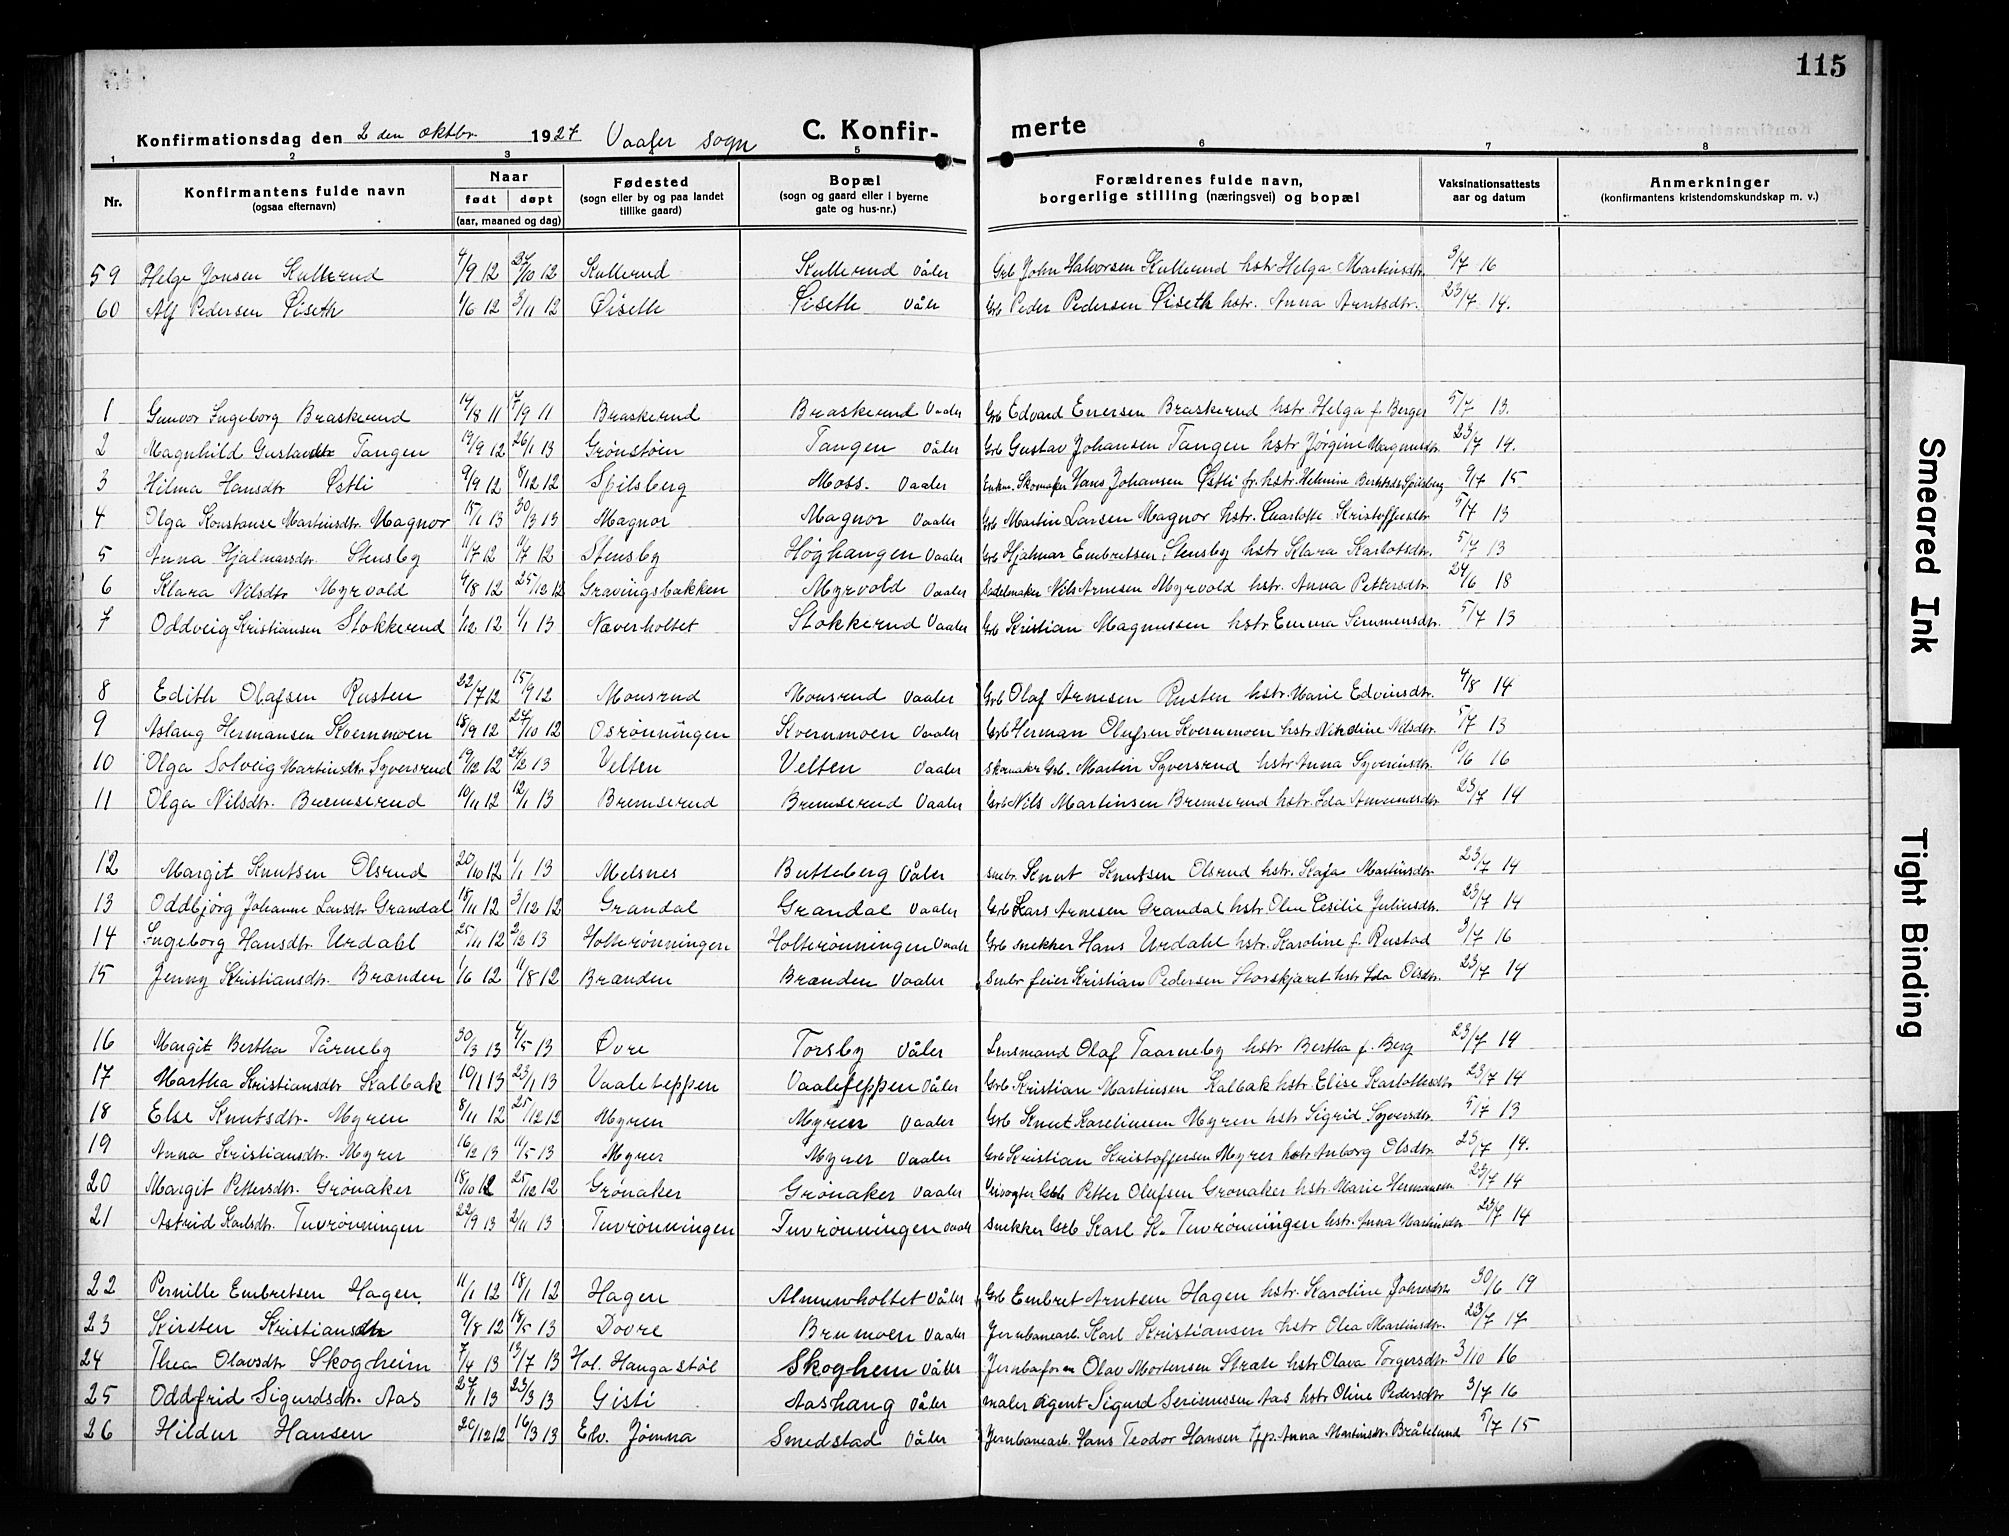 115
Konfirmationsdag den 2 den oktbr. 1927 Vaaler sogn C. Konfir- merte
1 2 3 5 6 7 8
Nr. Konfirmantens fulde navn (ogsaa efternavn) Naar født døpt (aar, maaned og dag) Fødested (sogn eller by og paa landet tillike gaard) Bopæl (sogn og gaard eller i byerne gate og hus-nr.) Forældrenes fulde navn, borgerlige stilling (næringsvei) og bopæl Vaksinationsattests aar og datum Anmerkninger (konfirmantens kristendomskundskap m. v.)
59 Helge Jonsen Kullerud 4/9 12 27/10 12 Kullerud Kullerud Våler Grb John Halvorsen Kullerud hstr Helga Martinsdtr. 3/7 16
60 Alf Pedersen Øiseth 1/6 12 3/11 12 Øiseth Øiseth Våler Grb Peder Pedersen Øiseth hstr. Anna Arntsdtr. 23/7 14.
1 Gunvor Ingeborg Braskerud 14/8 11 17/9 11 Braskerud Braskerud Vaaler Grb Edvard Enersen Braskerud hstr Helga f. Berger 5/7 13.
2 Magnhild Gustavsdtr Tangen 19/9 12 26/1 13 Grønstøen Tangen Våler Grb Gustav Johansen Tangen hstr Jørgine Magnusdtr. 23/7 14.
3 Hilma Hansdtr Østli 9/9 12 8/12 12 Spilsberg Moss. Vaaler Enkm. Skomaker Hans Johansen Østli fr. hstr. Helmine Spilsberg 9/7 15
4 Olga Konstanse Martinsdtr. Magnor 15/1 13 30/3 13 Magnor Magnor Vaaler Grb Martin Larsen Magnor hstr. Charlotte Kristoffersdtr 5/7 13
5 Anna Hjalmarsdtr Stensby 11/7 12 11/7 12 Stensby Høghaugen Vaaler Grb Hjalmar Embretsen Stensby hstr Klara Karlotsdtr. 5/7 13
6 Klara Nilsdtr Myrvold 4/8 12 25/12 12 Gravingsbakken Myrvold Vaaler Sadelmaker Nils Arnesen Myrvold hstr. Anna Pettersdtr 24/6 18
7 Oddveig Kristiansen Stokkerud 1/12 12 1/1 13 Næverholtet Stokkerud Vaaler Grb Kristian Magnussen hstr Emma Simmensdtr. 5/7 13
8 Edith Olafsen Rusten 22/7 12 15/9 12 Monsrud Monsrud Vaaler Grb Olaf Arnesen Rusten hstr Marie Edvinsdtr. 4/8 14
9 Aslaug Hermansen Kvernmoen 18/9 12 27/10 12 Osrønningen Kvernmoen Vaaler Grb Herman Olufsen Kvernmoen hstr Nikoline Nilsdtr. 5/7 13
10 Olga Solveig Martinsdtr Syversrud 19/12 12 24/2 13 Velten Velten Vaaler Skomaker Grb. Martin Syversrud hstr Anna Syverinsdtr 19/6 16
11 Olga Nilsdtr. Bremserud 10/11 12 12/1 13 Bremserud Bremserud Vaaler Grb Nils Martinsen Bremserud hstr. Ida Amundsdtr 23/7 14
12 Margit Knutsen Olsrud 20/10 12 1/1 13 Melsnes Butteberg Våler Smbr. Knut Knutsen Olsrud hstr. Kaja Martinsdtr. 23/7 14
13 Oddbjørg Johanne Larsdtr Grandal 18/11 12 3/12 12 Grandal Grandal Vaaler Grb Lars Arnesen Grandal hstr Oline Cesilie Juliusdtr. 23/7 14
14 Ingeborg Hansdtr. Urdahl 25/11 12 2/2 13 Holterønningen Holterønningen Vaaler Grb snekker Hans Urdahl hstr. Karoline f. Rustad 3/7 16
15 Jenny Kristiansdtr. Branden 1/6 12 11/8 12 Branden Branden Vaaler Smbr feier Kristian Pedersen Storskjæret hstr Ida Olsdtr. 23/7 14
16 Margit Bertha Tårneby 30/3 13 4/5 13 Øvre Torsby Våler Lensmand Olaf Taarneby hstr Bertha f. Berg 23/7 14
17 Martha Kristiansdtr Kalbak 10/1 13 23/1 13 Vaaleteppen Vaaleteppen Våler Grb Kristian Martinsen Kalbak hstr Elise Karlottesdtr 23/7 14
18 Else Knutsdtr. Myren 8/11 12 25/12 12 Myren Myren Vaaler Grb Knut Kareliussen Myren hstr Sigrid Syversdtr. 5/7 13
19 Anna Kristiansdtr. Myrer 16/2 13 11/5 13 Myrer Myrer Vaaler Grb Kristian Kristoffersen Myrer hstr Anborg Olsdtr. 23/7 14.
20 Margit Pettersdtr. Grønaker 18/10 12 25/12 12 Grønaker Grønaker Vaaler Grb Petter Olufsen Grønaker hstr Marie Hermansen 23/7 14
21 Astrid Karlsdtr. Tuvrønningen 22/9 13 2/11 13 Tuvrønningen Tuvrønningen Vaaler snekker Grb Karl K. Tuvrønningen hstr. Anna Martinsdtr 23/7 14
22 Pernille Embretsen Hagen. 11/1 12 18/1 12 Hagen Almenholtet Våler Grb Embret Arntsen Hagen hstr. Karoline Johnsdtr 30/6 19
23 Kirsten Kristiansdtr 9/8 12 18/5 13 Dovre Brumoen Vaaler Jernbanearb. Karl Kristiansen hstr Olea Martinsdtr. 23/7 17
24 Thea Olavsdtr Skogheim 7/4 13 13/7 13 Hol. Haugastøl Skoghem Våler Jernbaform Olav Mortensen Stræte hstr Olava Torgersdtr 3/10 16
25 Oddfrid Sigurdsdtr. Aas 27/1 13 23/3 13 Gisti Aashaug Våler maler agent Sigurd Aas hstr Oline Pedersdtr 3/7 16
26 Hildur Hansen 20/12 12 16/3 13 Elv. Jømna Smedstad Våler Jernbanearb. Hans Teodor Hansen Anna Martinsdtr. Bråtelund 5/7 15
Smeared Ink
Tight Binding